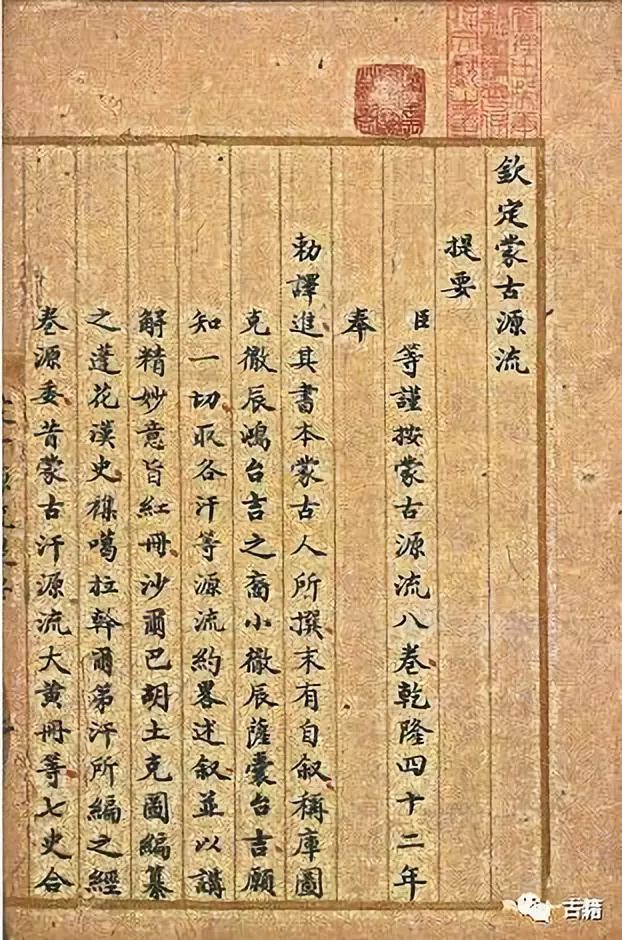 欽定蒙古源流
提要
臣等謹按蒙古源流八卷乾隆四十二年
奉
勅譯進其書本蒙古人所撰末有自叙稱庫圖
克徹辰鴻台吉之裔小徹辰薩囊台吉願
知一切取各汗等源流約畧述叙並以講
解精妙意旨紅冊沙爾巴胡土克圖編纂
之蓬花漢史襍噶拉斡爾第汗所編之經
卷源委昔蒙古汗源流大黃冊等七史合
古籍